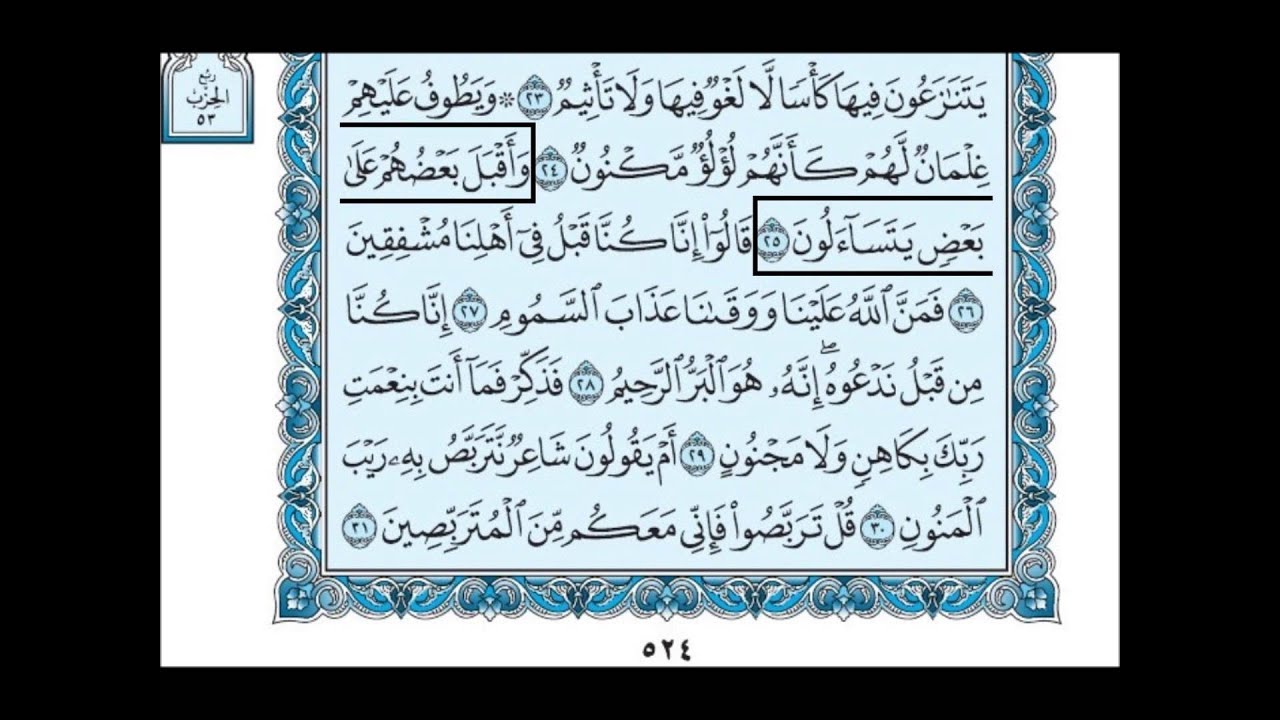 ربع
الحزب
٥٣
يَتَنَٰزَعُونَ فِيهَا كَأۡسٗا لَّا لَغۡوٞ فِيهَا وَلَا تَأۡثِيمٞ ٢٣ ۞ وَيَطُوفُ عَلَيۡهِمۡ
غِلۡمَانٞ لَّهُمۡ كَأَنَّهُمۡ لُؤۡلُؤٞ مَّكۡنُونٞ ٢٤ وَأَقۡبَلَ بَعۡضُهُمۡ عَلَىٰ
بَعۡضٖ يَتَسَآءَلُونَ ٢٥ قَالُوٓاْ إِنَّا كُنَّا قَبۡلُ فِيٓ أَهۡلِنَا مُشۡفِقِينَ
٢٦ فَمَنَّ ٱللَّهُ عَلَيۡنَا وَوَقَىٰنَا عَذَابَ ٱلسَّمُومِ ٢٧ إِنَّا كُنَّا
مِن قَبۡلُ نَدۡعُوهُۖ إِنَّهُۥ هُوَ ٱلۡبَرُّ ٱلرَّحِيمُ ٢٨ فَذَكِّرۡ فَمَآ أَنتَ بِنِعۡمَتِ
رَبِّكَ بِكَاهِنٖ وَلَا مَجۡنُونٍ ٢٩ أَمۡ يَقُولُونَ شَاعِرٞ نَّتَرَبَّصُ بِهِۦ رَيۡبَ
ٱلۡمَنُونِ ٣٠ قُلۡ تَرَبَّصُواْ فَإِنِّي مَعَكُم مِّنَ ٱلۡمُتَرَبِّصِينَ ٣١
٥٢٤